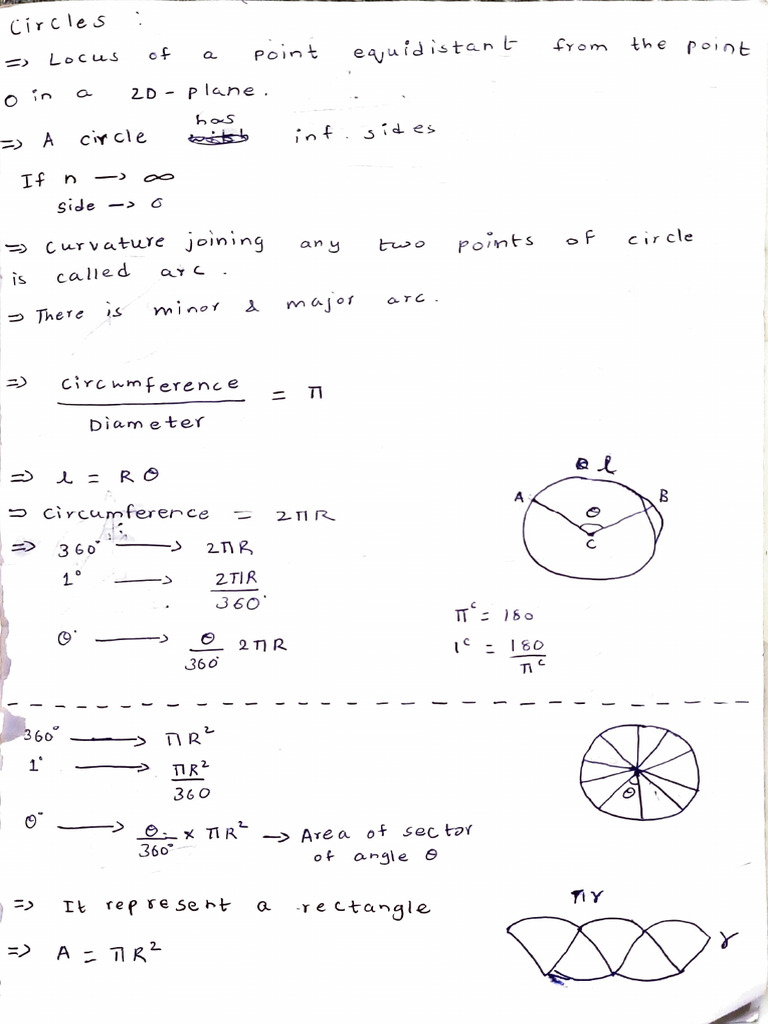 Circles :
=> Locus of a point equidistant from the point
O in a 2D-plane.
=> A circle has inf. sides
If n → ∞
side → 0
=> Curvature joining any two points of circle
is called arc.
=> There is minor & major arc.
=> Circumference / Diameter = π
=> l = Rθ
=> Circumference = 2πR
=> 360° → 2πR
1° → 2πR / 360°
θ° → θ / 360° 2πR
l
A
B
θ
C
πᶜ = 180
1ᶜ = 180 / πᶜ
360° → πR²
1° → πR² / 360
θ° → θ / 360° × πR² → Area of sector
of angle θ
θ
=> It represent a rectangle
=> A = πR²
πr
r